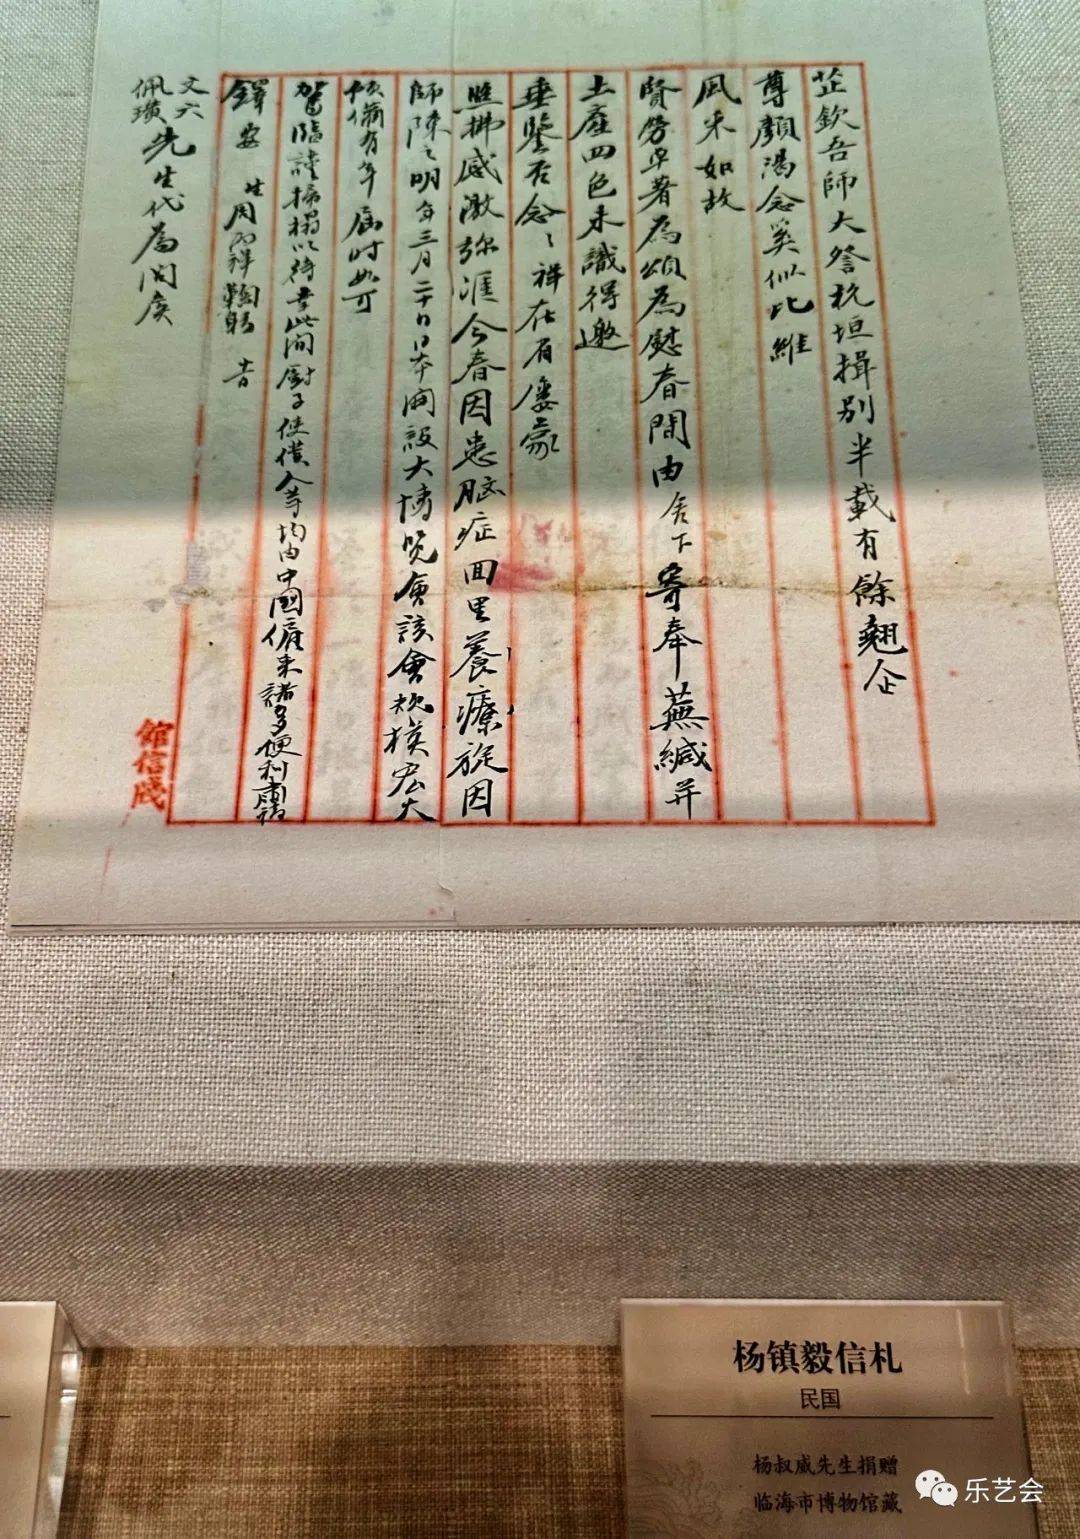 芷欽吾師大詧杭垣揖別半載有餘翹企
尊顏渴念奚似比維
風采如故
賢勞卓著為頌為慰春間由舍下寄奉蕪緘并
土產四色未識得邀
垂鑒否念〻祥在肩屢蒙
照拂感激弥涯今春因患脑症回里養療旋因
師陳〻明年三月二十日日本開設大博覽會該會規模宏大
預備有年屆時如可
駕臨謹掃榻以待幸此間廚子使僕人等均由中國僱來諸多便利肅請
鐸安 生周 祥鞠躬
文六
佩璜先生代為問候
館信牋
杨镇毅信札
民国
杨叔威先生捐赠
临海市博物馆藏
乐艺会